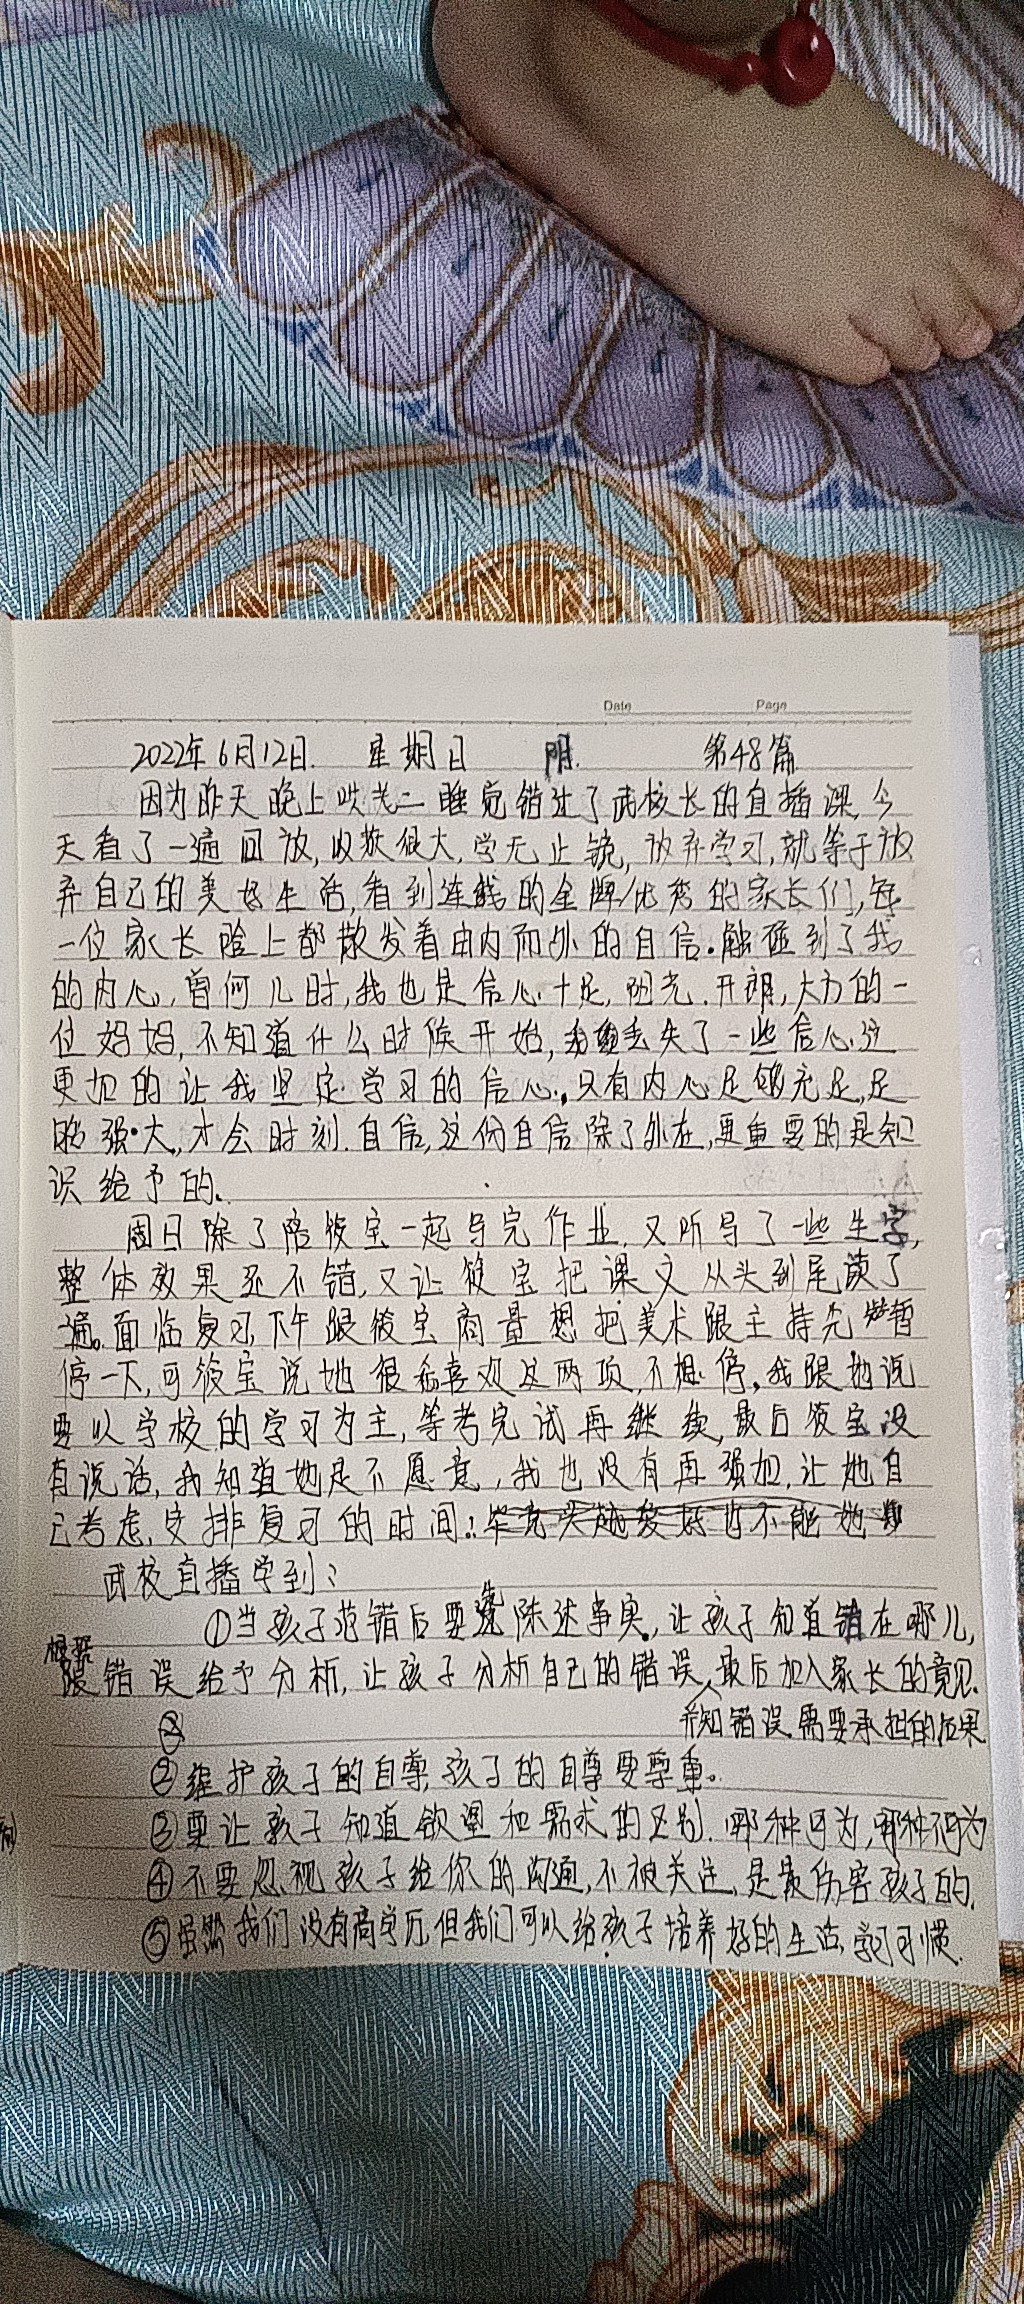 Date Page
2022年6月12日. 星期日 阴. 第48篇
因为昨天晚上哄老二睡觉错过了武校长的直播课,今
天看了一遍回放,收获很大,学无止镜,放弃学习,就等于放
弃自己的美好生活,看到连线的金牌/优秀的家长们,每
一位家长脸上都散发着由内而外的自信.触碰到了我
的内心,曾何几时,我也是信心十足,阳光.开朗,大方的一
位妈妈,不知道什么时候开始,丢失了一些信心.这
更加的让我坚定学习的信心,只有内心足够充足,足
够强大,才会时刻自信,这份自信除了外在,更重要的是知
识给予的.
周日除了陪筱宝一起写完作业,又听写了一些生字,
整体效果还不错,又让筱宝把课文从头到尾读了
遍。面临复习,下午跟筱宝商量想把美术跟主持先暂
停一下,可筱宝说她很喜欢这两项,不想停,我跟她说
要以学校的学习为主,等考完试再继续,最后筱宝没
有说话,我知道她是不愿意,我也没有再强加,让她自
己考虑,安排复习的时间.
武校直播学到:
①当孩子范错后要先陈述事实,让孩子知道错在哪儿,
根据错误给予分析,让孩子分析自己的错误,最后加入家长的意见.
并知错误需要承担的后果
②
②维护孩子的自尊,孩子的自尊要尊重。
③要让孩子知道欲望和需求的区别.哪种可为,哪种不可为
④不要忽视孩子给你的沟通,不被关注,是最伤害孩子的.
⑤虽然我们没有高学历,但我们可以给孩子培养好的生活,学习习惯.